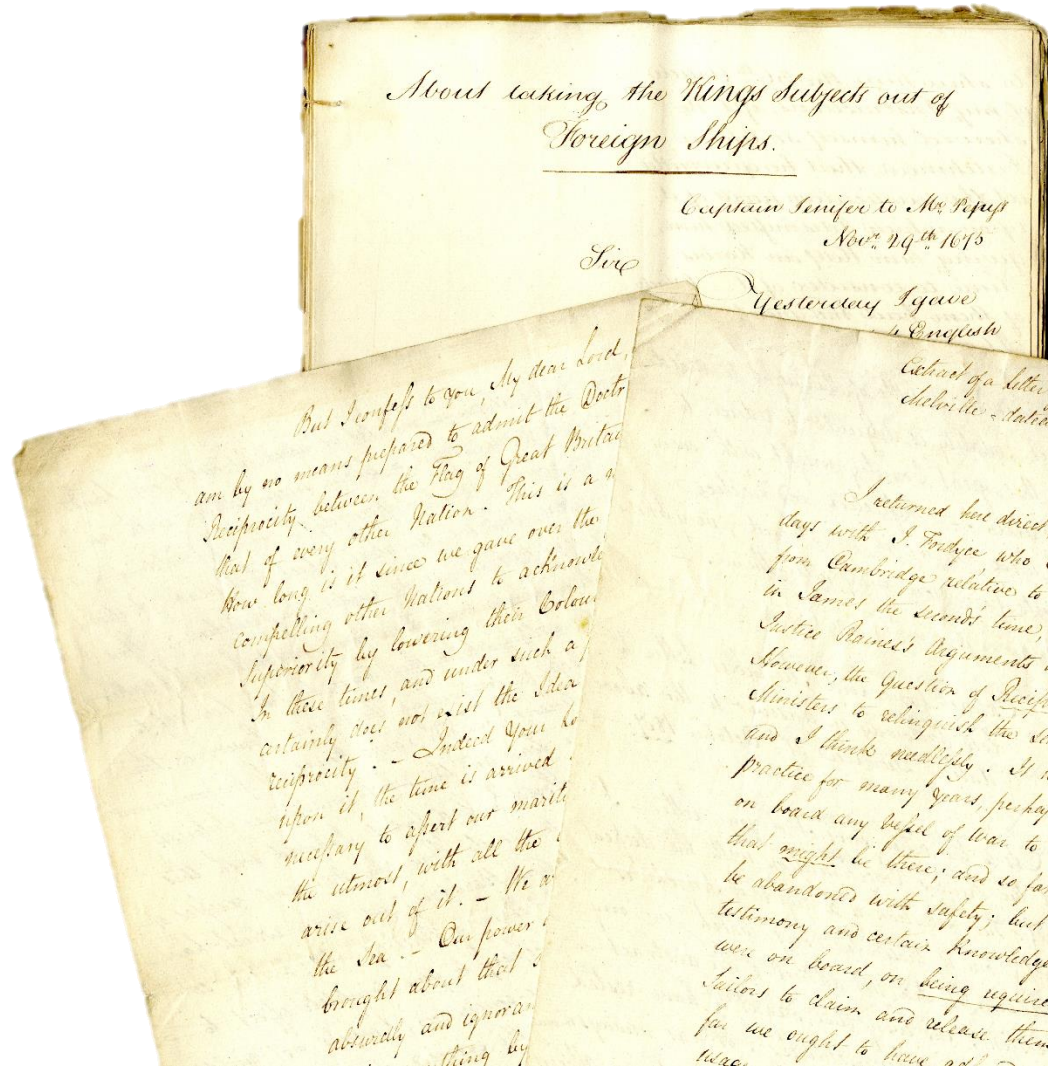 About taking the Kings Subjects out of
Foreign Ships.
Captain Jenifer to Mr. Pepys
Novr. 29th 1675
Sir
Yesterday I gave
English
But I confess to you, My dear Lord,
am by no means prepared to admit the Doctr
Reciprocity between the Flag of Great Britai
that of every other Nation. This is a
How long is it since we gave over the
compelling other Nations to acknowle
Superiority by lowering their Colou
In these times, and under such a
certainly does not exist the Idea
reciprocity. - Indeed Your Lo
upon it, the time is arrived
necessary to assert our marit
the utmost, with all the
arise out of it. - We a
the Sea. - Our power
brought about that
absurdly and ignoran
thing by
Extract of a letter
Melville - dated
I returned here direct
days with J. Fordyce who
from Cambridge relative to
in James the second's time,
Justice Raines's Arguments
However, the Question of Recip
Ministers to relinquish the
and I think needlessly. It
practice for many years, perhap
on board any Vessel of War to
that might be there; and so far
be abandoned with safety; but
testimony and certain Knowledge
were on board, on being require
Sailors to claim and release them
far we ought to have
usag